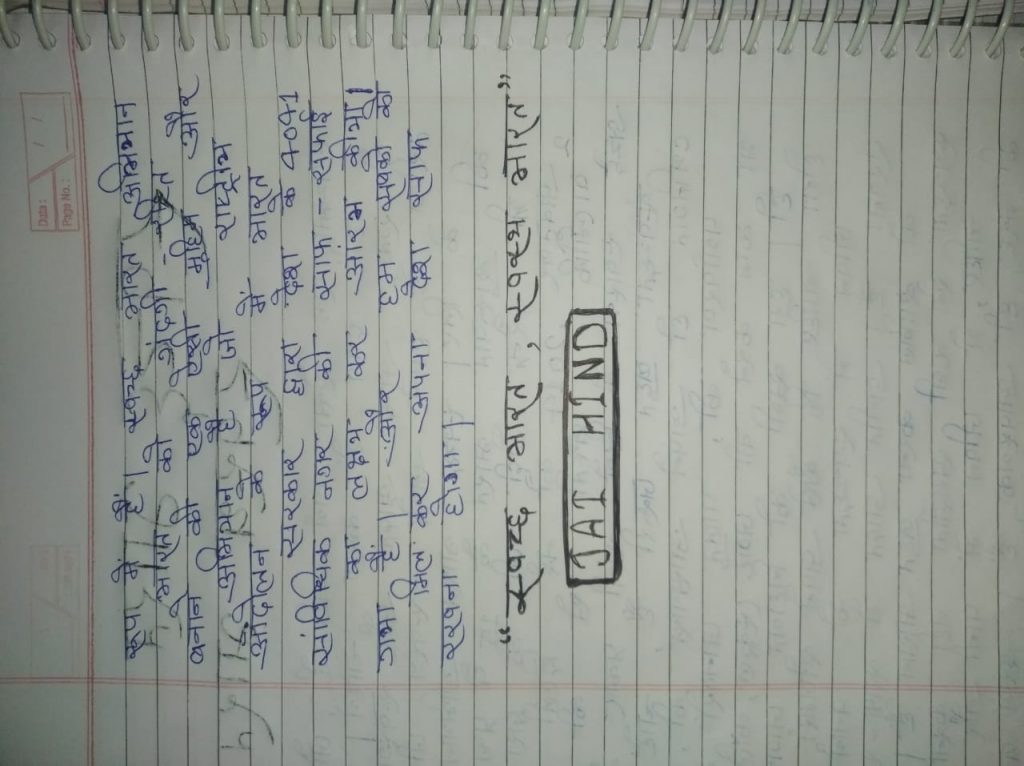 Date : / /
Page No.:
रूप में है। स्वच्छ भारत अभियान
भारत को गंदगी - मुक्त
बनाने की एक ऐसी मुहिम और
अभियान है जो राष्ट्रीय
आंदोलन के रूप में भारत
सरकार द्वारा देश के 4041
सांविधिक नगर की साफ - सफाई
का लक्ष्य कर आरंभ की
गया है। और हम सबको के
मिल कर अपना देश साफ
रखना होगा।
"स्वच्छ भारत, स्वस्थ भारत"
JAI HIND